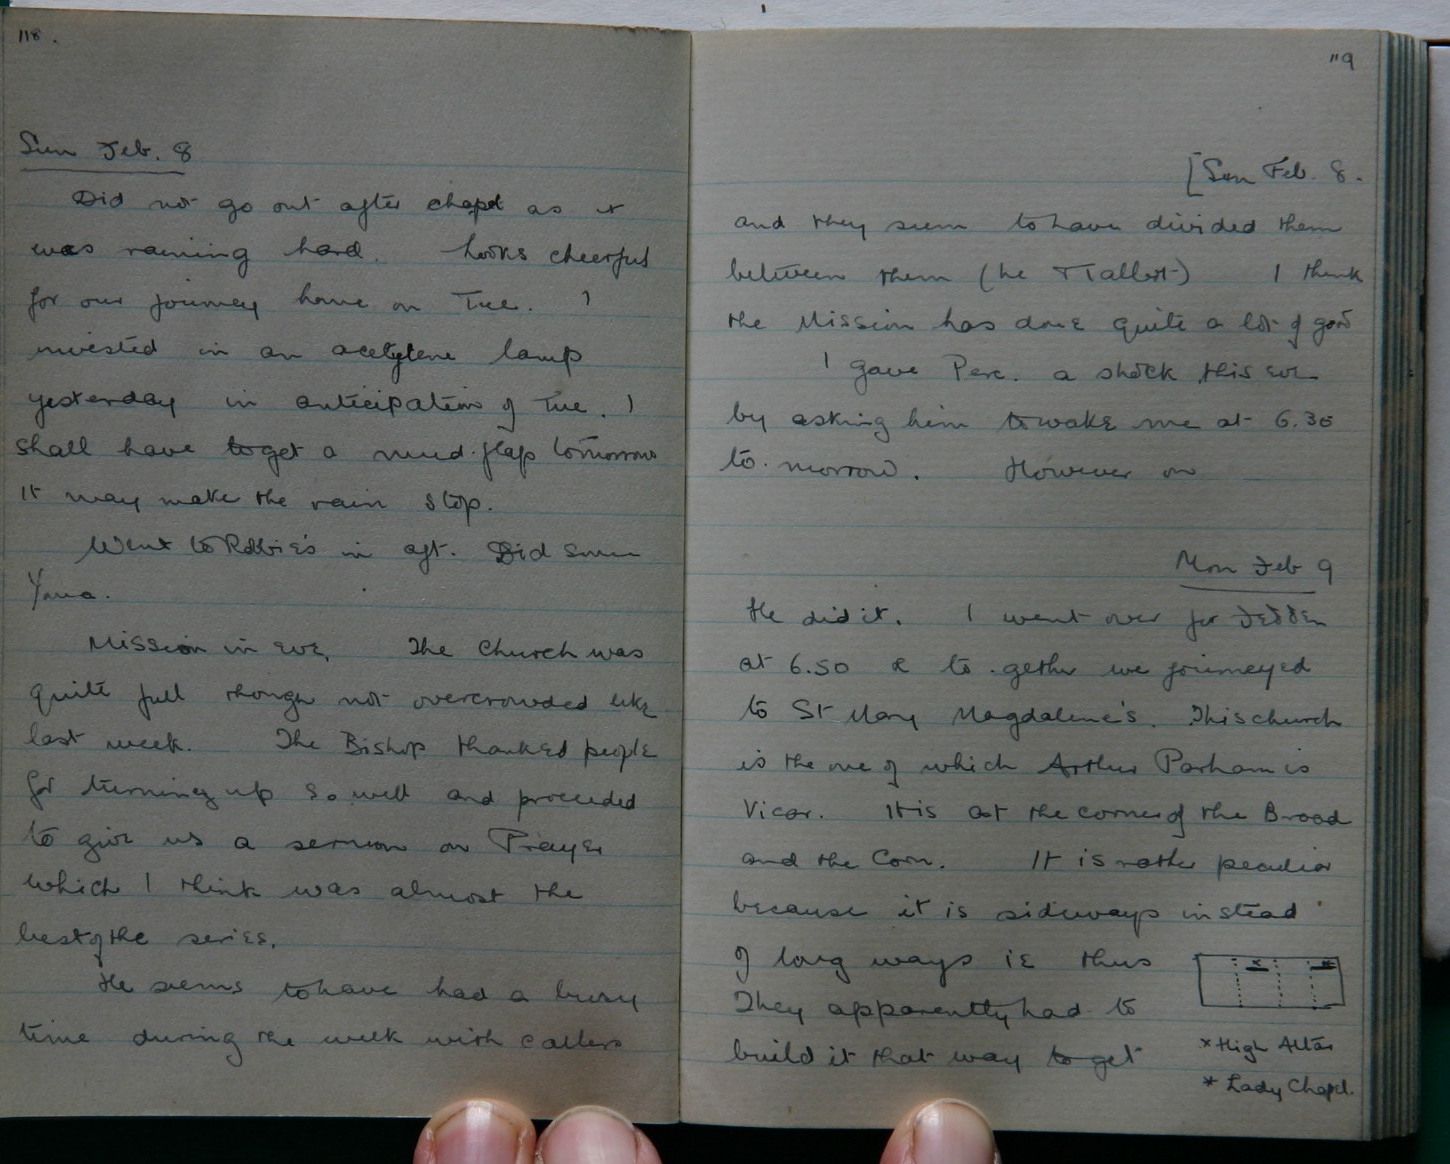 118.
Sun Feb. 8
Did not go out after chapel as it
was raining hard. Looks cheerful
for our journey home on Tue. I
invested in an acetylene lamp
yesterday in anticipation of Tue. I
shall have to get a mud-flap tomorrow
it may make the rain stop.
Went to Robbie's in aft. Did some
Mission in eve. The Church was
quite full though not overcrowded like
last week. The Bishop thanked people
for turning up so well and proceeded
to give us a sermon on Prayer
which I think was almost the
best of the series.
He seems to have had a busy
time during the week with callers
119
[Sun Feb. 8.
and they seem to have divided them
between them (he & Talbot) I think
the Mission has done quite a lot of good
I gave Perc. a shock this eve
by asking him to wake me at 6.30
to-morrow. However on
Mon Feb 9
He did it. I went over for
at 6.50 & to-gether we journeyed
to St Mary Magdalene's. This church
is the one of which Arthur Parham is
Vicar. It is at the corner of the Broad
and the Corn. It is rather peculiar
because it is sideways instead
of long ways ie thus
They apparently had to
build it that way to get
x High Altar
* Lady Chapel.